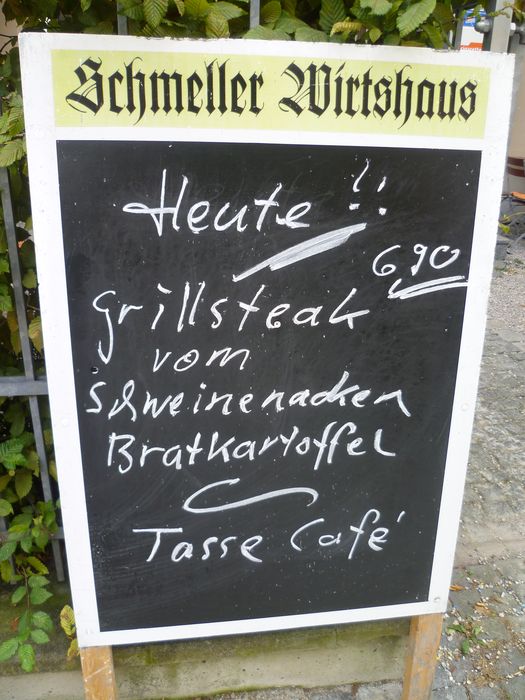 Schmeller Wirtshaus
Heute !!
6 90
Grillsteak
vom
Schweinenacken
Bratkartoffel
Tasse Café